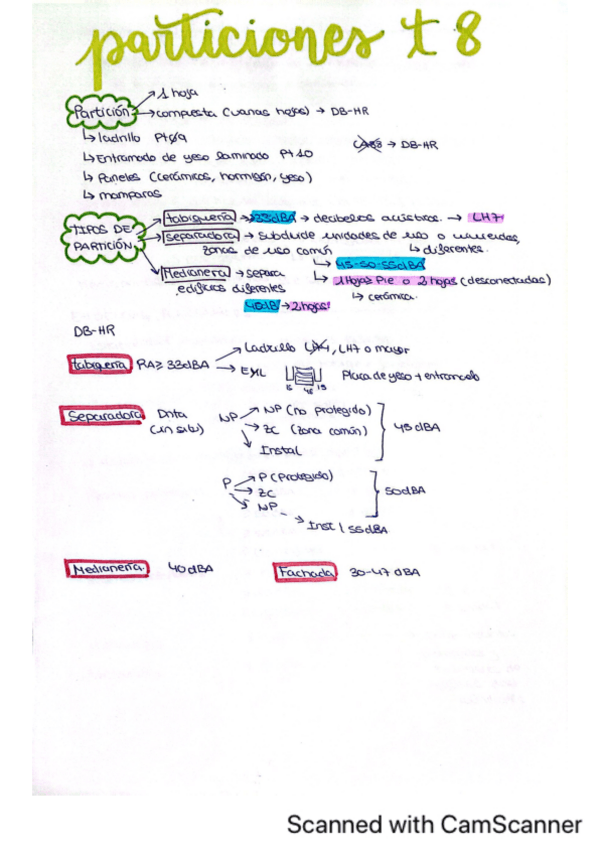 particiones t 8
Partición → 1 hoja
→ compuesta (varias hojas) → DB-HR
↳ ladrillo Pt 9
↳ Entramado de yeso laminado Pt 10
→ DB-HR
↳ Paneles (cerámicos, hormigón, yeso)
↳ mamparas
TIPOS DE PARTICIÓN
tabiquería → 33dBA → decibelios acústicos. → LH7
Separadora → subdivide unidades de uso o viviendas,
zonas de uso común ↳ diferentes.
↳ 45-50-55dBA
Medianera → separa
edificios diferentes
↳ 1 Hoja 1 Pie o 2 hojas (desconectadas)
↳ cerámica.
40dB → 2 hojas
DB-HR
tabiquería RA ≥ 33dBA → Ladrillo LH7 o mayor
→ EYL Placa de yeso + entramado
15 48 15
Separadora Dnta
(in situ)
NP → NP (no protegido)
→ ZC (zona común)
→ Instal
45 dBA
P → P (Protegido)
→ ZC
→ NP
50dBA
→ Inst | 55dBA
Medianería. 40dBA
Fachada 30-47 dBA
Scanned with CamScanner